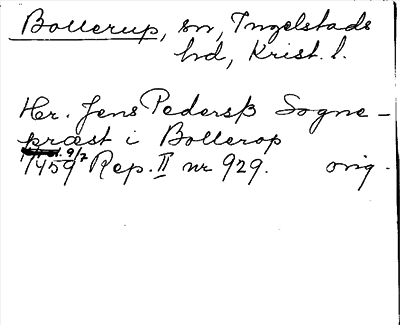 Bollerup, sn, Ingelstads
hd, Krist. l.
Hr. Jens Pederss Sogne-
præst i Bollerop
1459 9/7 Rep. II nr 929. orig.